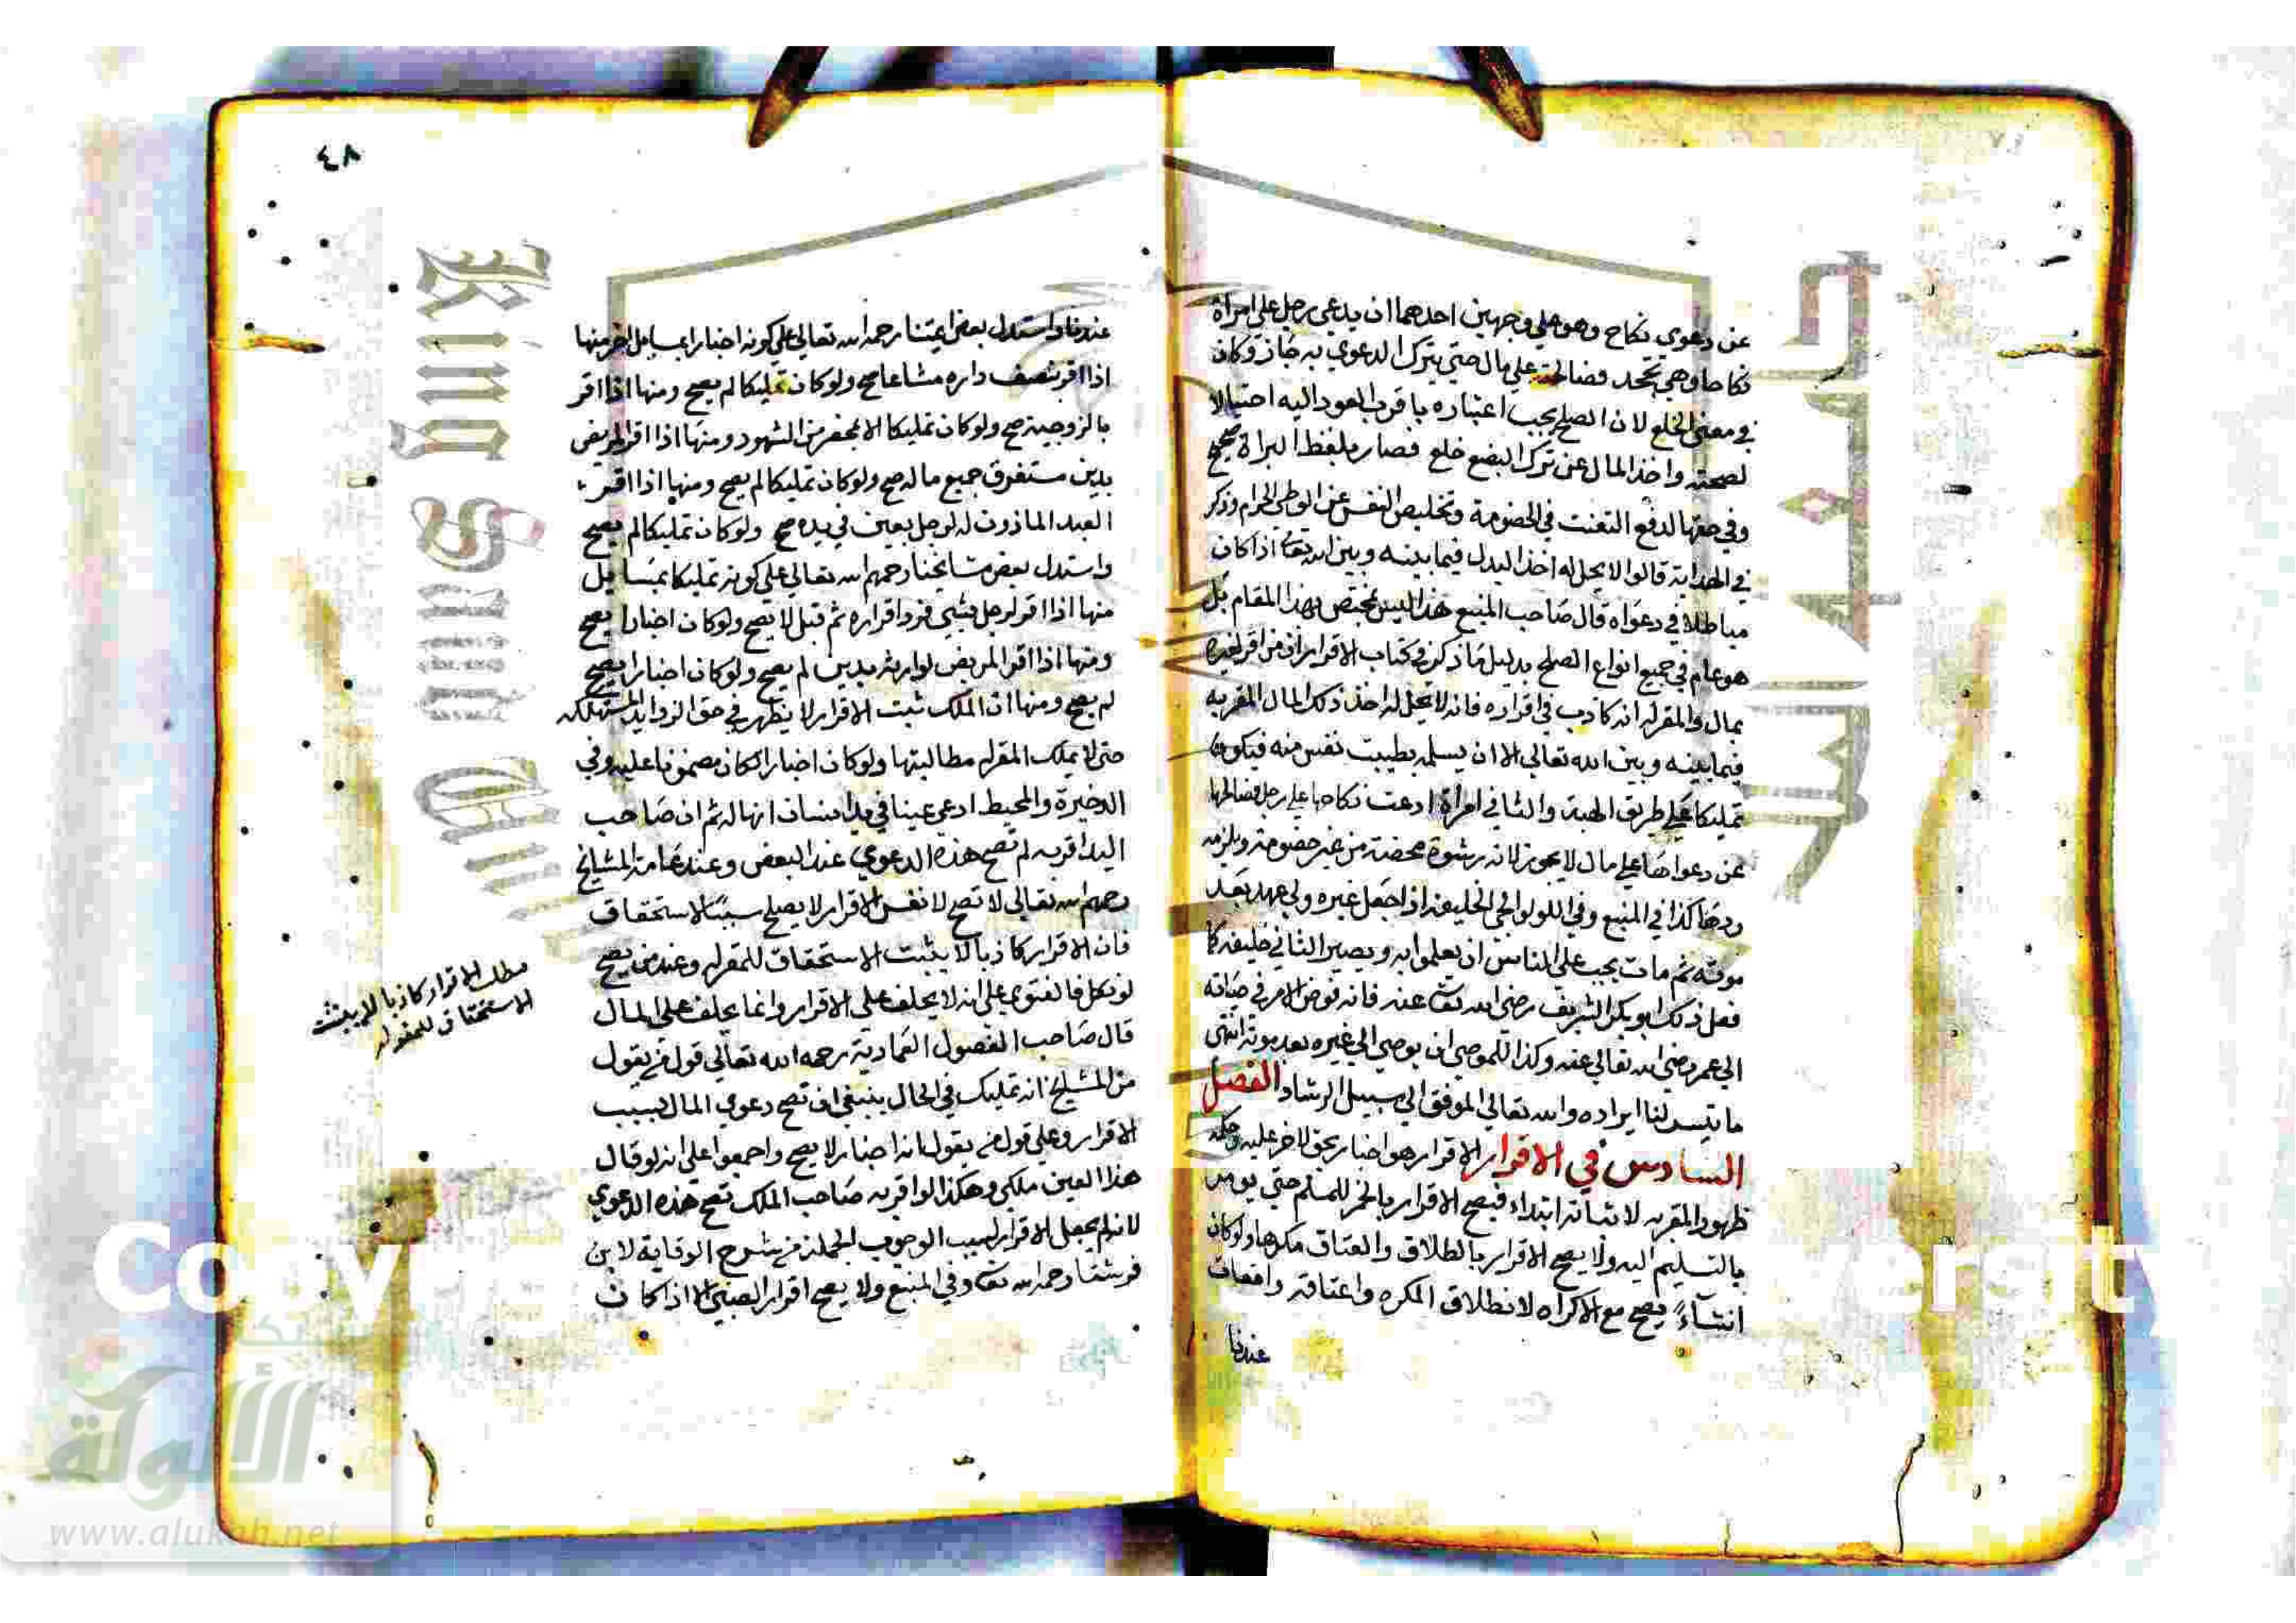 عن دعوي نكاح وهو علي وجهين احدهما ان يدعي رجل علي امراة
نكاحا وهي تجحد فصالحته علي مال حتي يترك الدعوي به جاز وكان
في معني الخلع لان الصلح يجب اعتباره باقرب العقود اليه احتيالا
لصحته واخذ المال عن ترك البضع خلع فصار بلفظ البراة صحيح
وفي حقها لدفع التعنت في الخصومة وتخليص النفس عن الوطي الحرام وذكر
في الهداية قالوا لا يحل له اخذ البدل فيما بينه وبين الله تعا اذا كان
مباطلا في دعواه قال صاحب المنبع هذا ليس بمختص بهذا المقام بل
هو عام في جميع انواع الصلح بدليل ما ذكر في كتاب الاقرار ان من اقر لغيره
بمال والمقر له انه كاذب في اقراره فانه لا يحل له اخذ ذلك المال المقر به
فيما بينه وبين الله تعالي الا ان يسلمه بطيبت نفس منه فيكون
تمليكا علي طريق الهبة والثاني امراة ادعت نكاحا علي رجل فصالحها
عن دعواها علي مال لا يجوز لانه رشوة محضة من غير خصومة ويلزمه
ردها كذا في المنبع وفي اللولوالجي الخليفة اذا جعل غيره ولي عهد بعد
موته ثم مات يجب علي الناس ان يعملوا به ويصير الثاني خليفة كما
فعل ذلك ابو بكر الشريف رضي الله تعا عنه فانه فوض الامر في حياته
الي عمر رضي الله تعالي عنه وكذا للموصي ان يوصي الي غيره بعد موته انتهي
ما تيسر لنا ايراده والله تعالي الموفق الي سبيل الرشاد الفصل
السادس في الاقرار الاقرار هو اخبار بحق لاخر عليه وحكمه
ظهور المقر به لا اثباته ابتداء فيصح الاقرار بالخمر للمسلم حتي يومر
بالتسليم اليه ولا يصح الاقرار بالطلاق والعتاق مكرها ولو كان
انشاءً يصح مع الاكراه لان طلاق المكره واعتاقه واقعات
عندنا
٤٨
عندنا واستدل بعض ايمتنا رحمه الله تعالي علي كونه اخبارا بمسايل اخر منها
اذا اقر بنصف داره مشاعا صح ولو كان تمليكا لم يصح ومنها اذا اقر
بالزوجية صح ولو كان تمليكا الا بمحضر من الشهود ومنها اذا اقر المريض
بدين مستغرق جميع ماله صح ولو كان تمليكا لم يصح ومنها اذا اقر
العبد الماذون له لرجل بعين في يده صح ولو كان تمليكا لم يصح
واستدل بعض مشايخنا رحمهم الله تعالي علي كونه تمليكا بمسايل
منها اذا اقر لرجل بشي فرد اقراره ثم قبل لا يصح ولو كان اخبارا يصح
ومنها اذا اقر المريض لوارثه بدين لم يصح ولو كان اخبارا يصح
لم يصح ومنها ان الملك ثبت الاقرار لا يظهر في حق الزوايد المستهلكه
حتي لا يملك المقر له مطالبتها ولو كان اخبارا لكان مضمونا عليه وفي
الدخيرة والمحيط ادعي عينا في يد انسان انها له ثم ان صاحب
اليد اقر به لم تصح هذه الدعوي عند البعض وعند عامة المشايخ
رحمهم الله تعالي لا تصح لان نفس الاقرار لا يصلح سببا لاستحقاق
فان الاقرار كاذبا لا يثبت الاستحقاق للمقر له وعند من يصح
لو نكل فالفتوي علي انه لا يحلف علي الاقرار وانما يحلف علي المال
قال صاحب الفصول العمادية رحمه الله تعالي قول من يقول
من المشايخ انه تمليك في الحال ينبغي ان تصح دعوي المال بسبب
الاقرار وعلي قول من يقول بانه اخبار لا يصح واجمعوا علي انه لو قال
هذا العين ملكي وهكذا لو اقر به صاحب الملك تصح هذه الدعوي
لانه لم يجعل الاقرار لسبب الوجوب الجملة من شرح الوقاية لابن
فرشتا رحمه الله تعا وفي المنبع ولا يصح اقرار الصبي الا اذا كان
مطلب الاقرار كاذبا لا يثبت
الاستحقاق للمقر له
King Saud
الألوكة
www.alukah.net